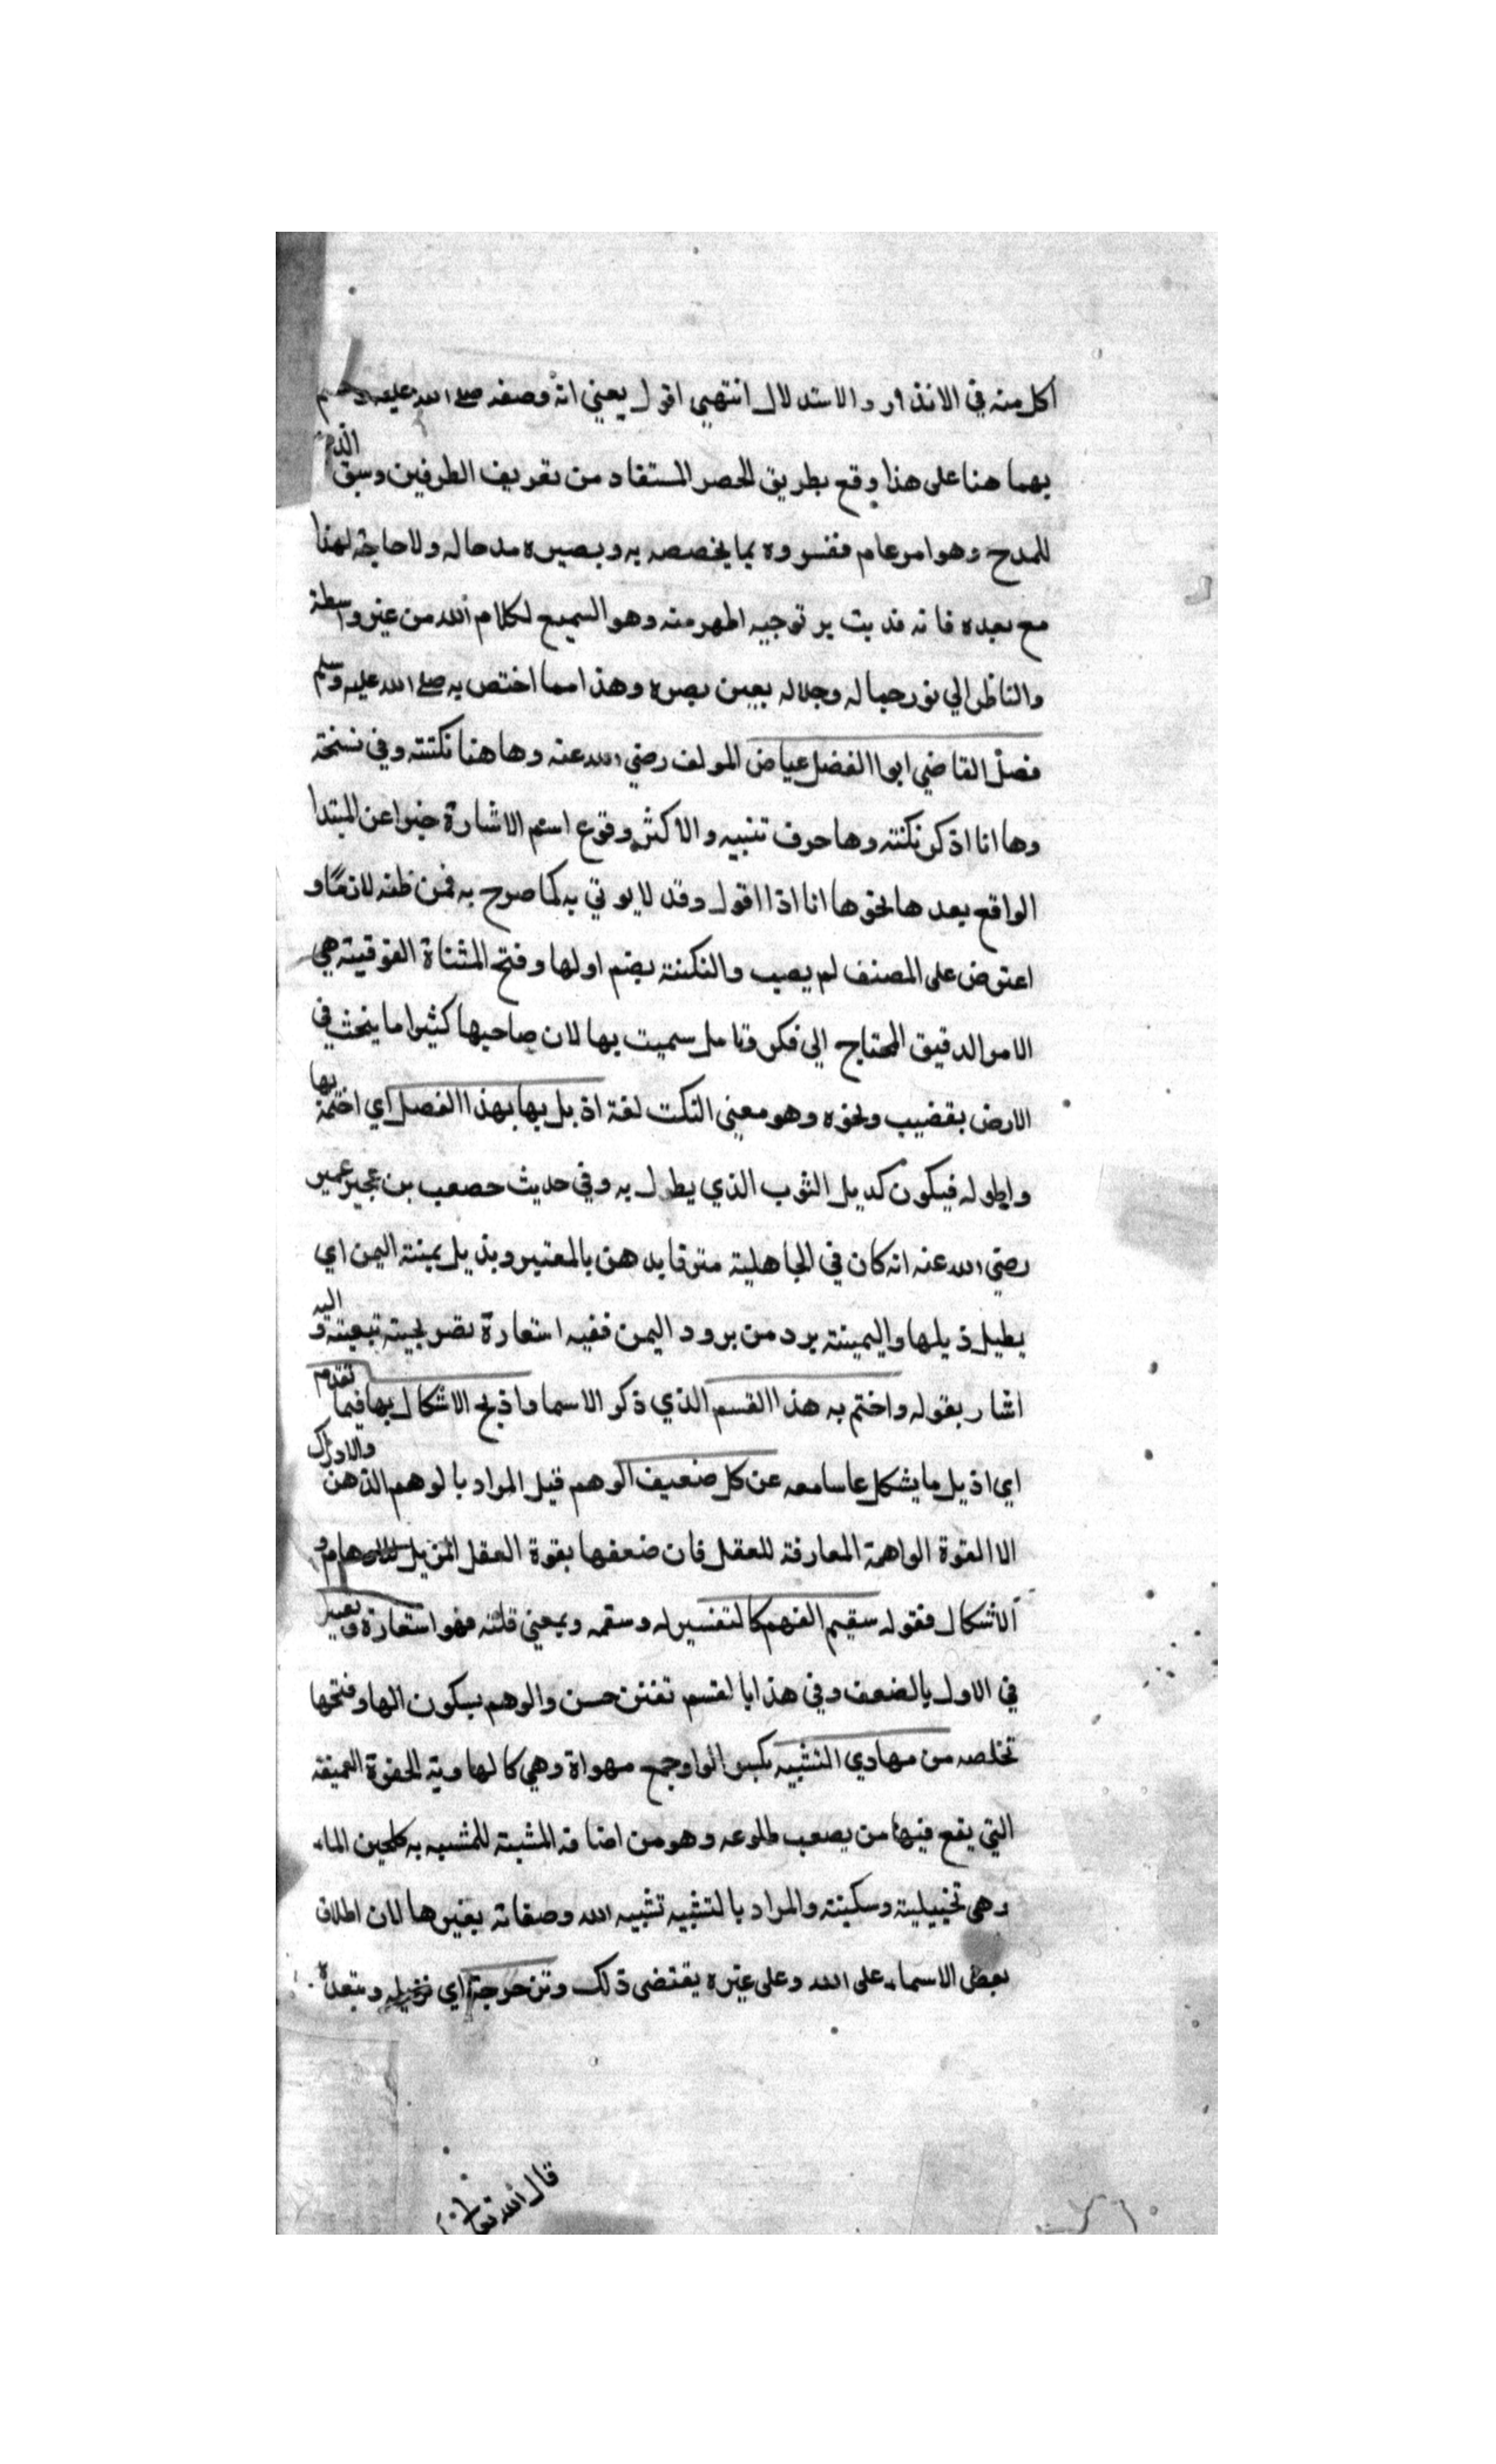 اكل منه في الانذار والاستدلال انتهي اقول يعني انه وصفه صلي الله عليه وسلم
بهما هنا على هذا وقع بطريق الحصر المستفاد من تعريف الطرفين وسيق الذم
للمدح وهو امر عام ففسروه بما يخصصه به ويصيره مدحا له ولا حاجة لهذا
مع بعده فانه قد يتيسر توجيه اظهر منه وهو السميع لكلام الله من غير واسطة
والناظر الي نور جماله وجلاله بعين بصره وهذا مما اختص به صلي الله عليه وسلم
فصل القاضي ابوا الفضل عياض المولف رضي الله عنه وهاهنا نكتته وفي نسخة
وها انا اذكر نكتته وها حرف تنبيه والاكثر وقوع اسم الاشارة خبرا عن المبتدا
الواقع بعد ها نحو ها انا اذا اقول وقد لا يوتي به كما صرح به فمن ظنه لازما و
اعترض على المصنف لم يصب والنكتته بضم اولها وفتح المثناة الفوقيته هي
الامر الدقيق المحتاج الي فكر وتامل سميت بها لان صاحبها كثيرا ما ينحث في
الارض بقضيب ونحوه وهو معني النكت لغة اذيل بها بهذا الفصل اي اختمه بها
واطوله فيكون كديل الثوب الذي يطول به وفي حديث حصعب بن عجير عمير
رضي الله عنه انه كان في الجاهليته مترفا يدهن بالعبير ويذيل يمنته اليمن اي
يطيل ذيلها واليمينته برد من برود اليمن ففيه استعارة تصريحيته تبعيته و اليه
اشار بقوله واختم به هذا القسم الذي ذكر الاسما واذيح الاشكال بها فيما تقدم
اي اذيل ما يشكل عا سامعه عن كل ضعيف الوهم قيل المراد بالوهم الذهن والادراك
الا القوة الواهمة المعارفة للعقل فان ضعفها بقوة العقل المزيل للاوهام و
الاشكال فقوله سقيم الفهم كالتفسير له وسقمه وبمعني قلته فهو استعارة وتعبير
في الاول بالضعف وفي هذا بالقسم تفنن حسن والوهم بسكون الها وفتحها
تخلصه من مهاوي التشبيه بكسر الواو جمع مهواة وهي كالهاويته الحفرة العميقة
التي يقع فيها من يصعب طلوعه وهو من اضافة المشبته للمشبه به كلجين الماء
وهي تخييلية وسكينته والمراد بالتشبيه تشبيه الله وصفاته بغيرها لان اطلاق
بعض الاسماء على الله وعلى غيره يقتضي ذلك وتزحزحه اي تزيله وتبعده
قال الله تعالى